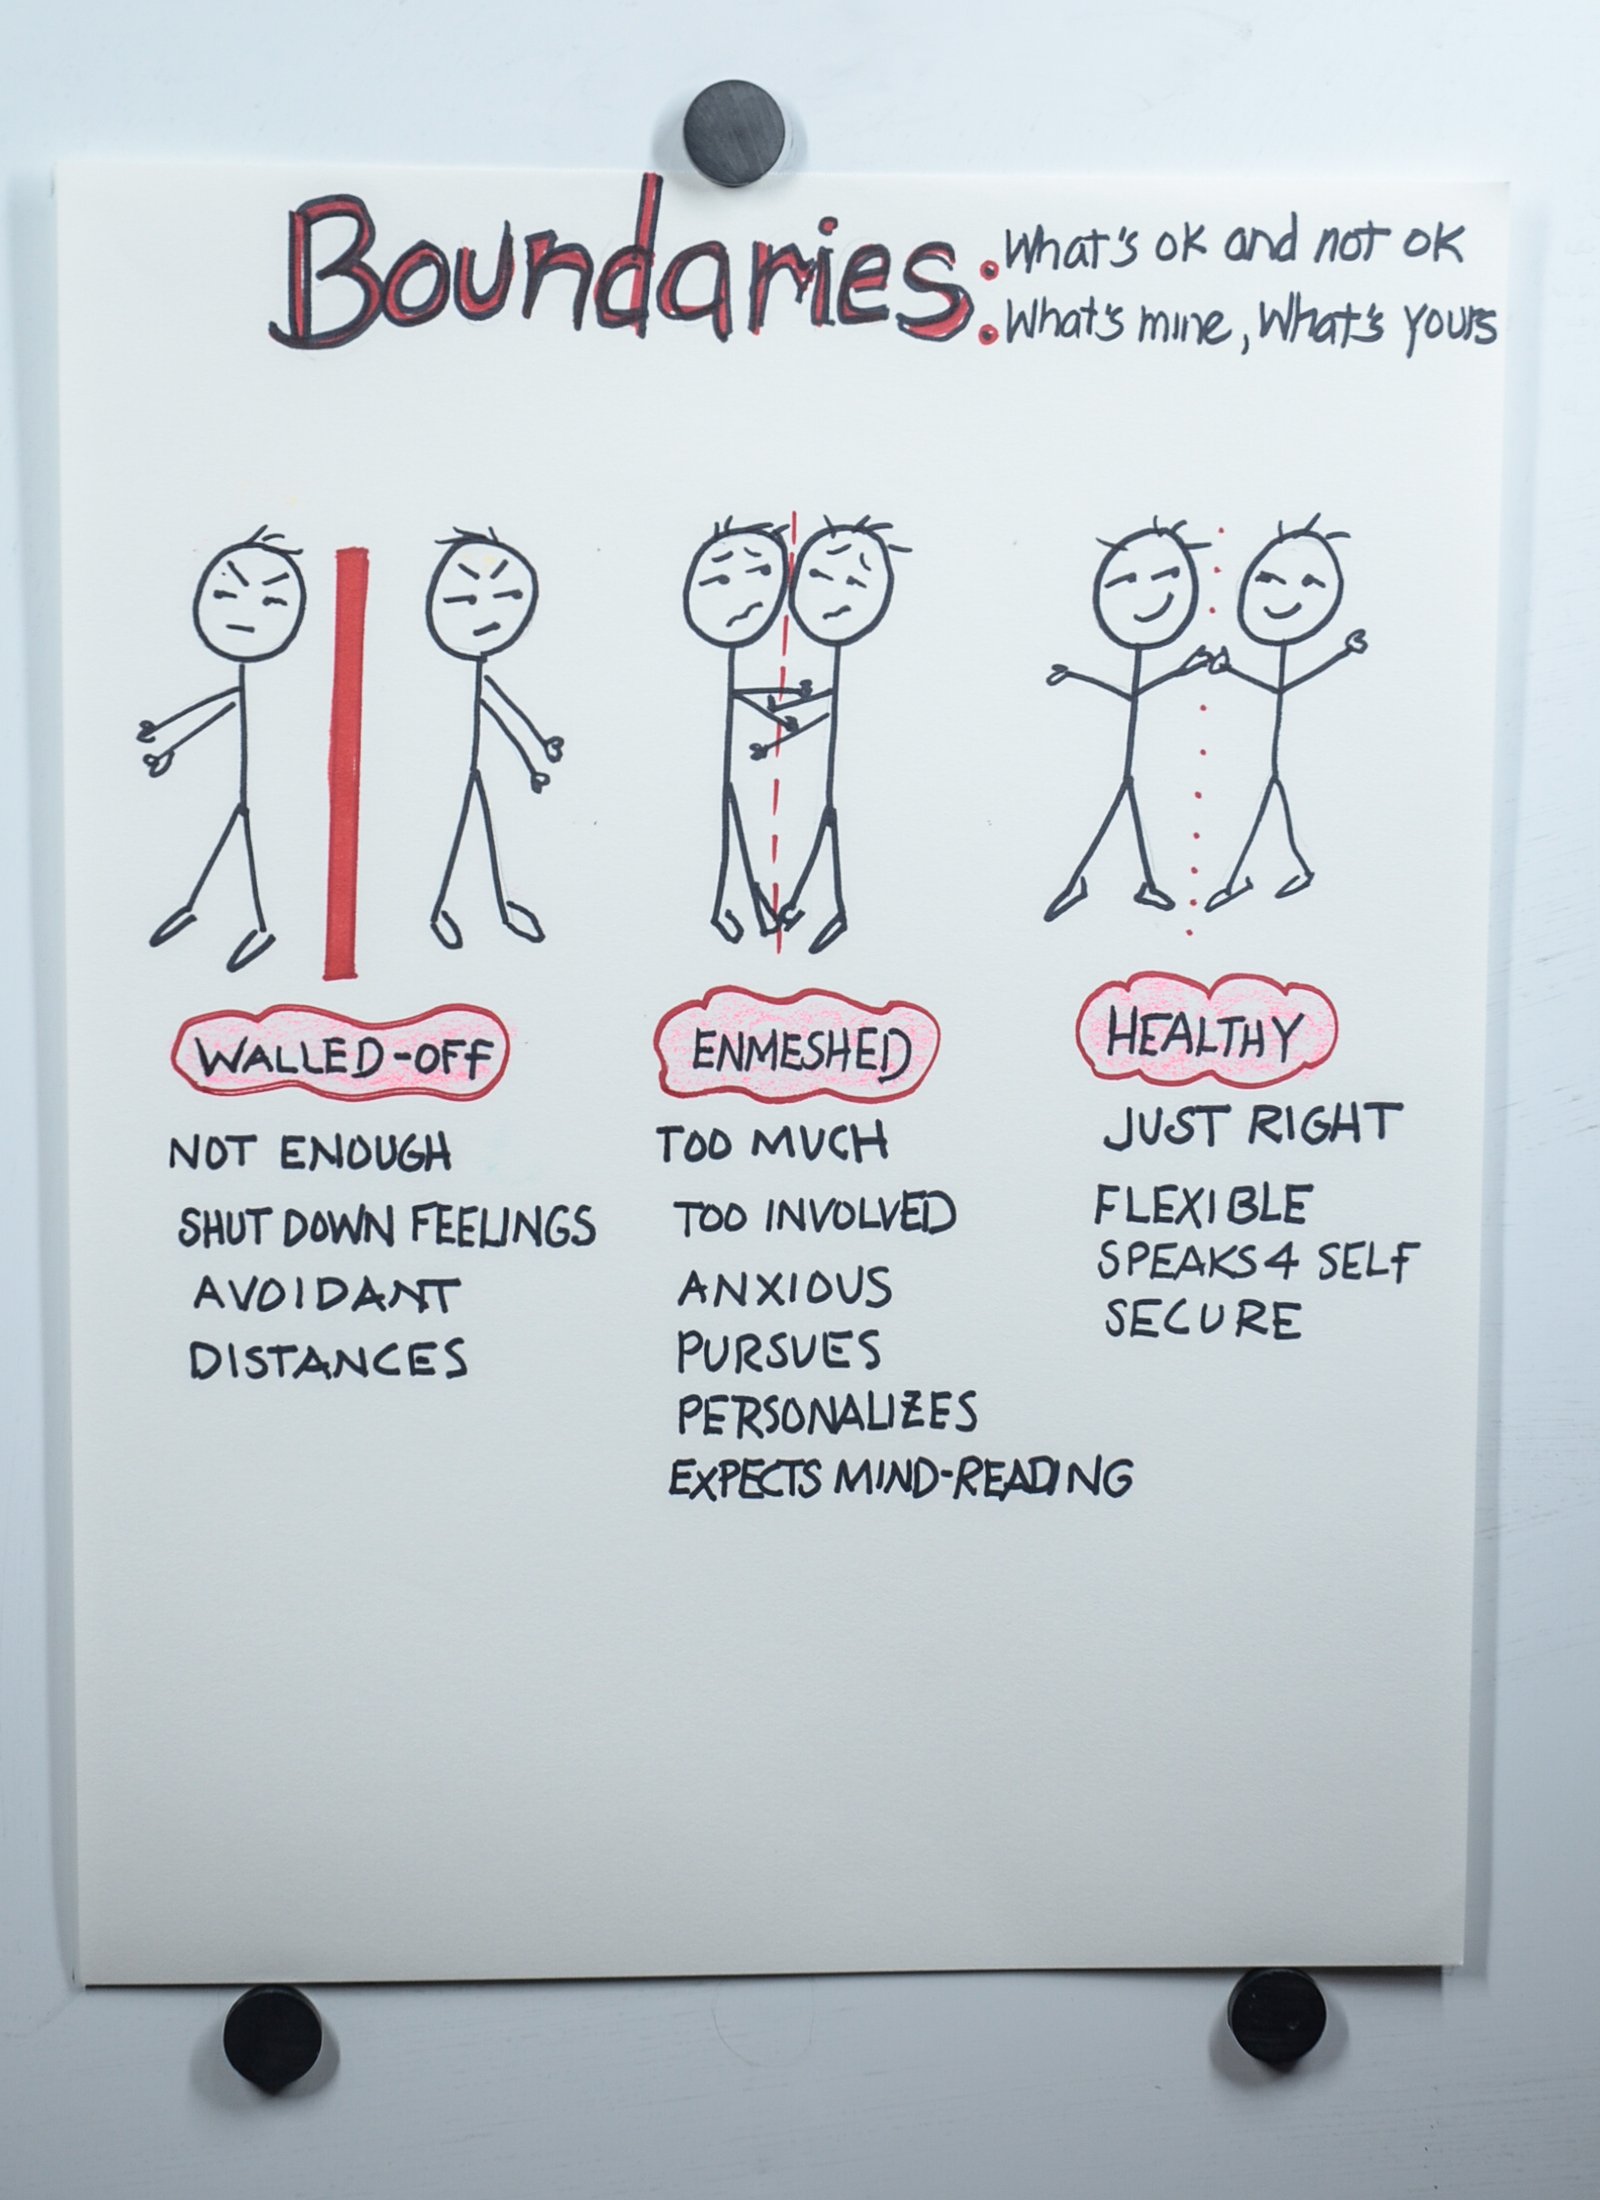 Boundaries:
What's ok and not ok
What's mine, What's yours
WALLED-OFF
NOT ENOUGH
SHUT DOWN FEELINGS
AVOIDANT
DISTANCES
ENMESHED
TOO MUCH
TOO INVOLVED
ANXIOUS
PURSUES
PERSONALIZES
EXPECTS MIND-READING
HEALTHY
JUST RIGHT
FLEXIBLE
SPEAKS 4 SELF
SECURE